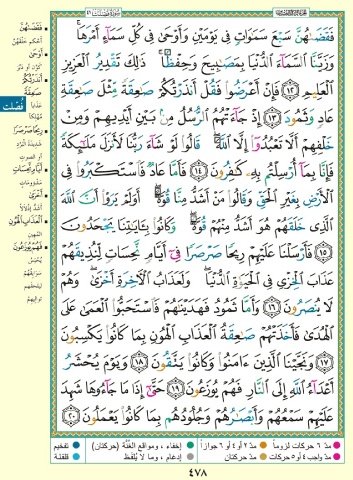 فَقَضَىٰهُنَّ سَبْعَ سَمَٰوَاتٍ فِى يَوْمَيْنِ وَأَوْحَىٰ فِى كُلِّ سَمَآءٍ أَمْرَهَا ۚ
وَزَيَّنَّا ٱلسَّمَآءَ ٱلدُّنْيَا بِمَصَٰبِيحَ وَحِفْظًا ۚ ذَٰلِكَ تَقْدِيرُ ٱلْعَزِيزِ
ٱلْعَلِيمِ ١٢ فَإِنْ أَعْرَضُوا۟ فَقُلْ أَنذَرْتُكُمْ صَٰعِقَةً مِّثْلَ صَٰعِقَةِ
عَادٍ وَثَمُودَ ١٣ إِذْ جَآءَتْهُمُ ٱلرُّسُلُ مِنۢ بَيْنِ أَيْدِيهِمْ وَمِنْ
خَلْفِهِمْ أَلَّا تَعْبُدُوٓا۟ إِلَّا ٱللَّهَ ۖ قَالُوا۟ لَوْ شَآءَ رَبُّنَا لَأَنزَلَ مَلَٰٓئِكَةً
فَإِنَّا بِمَآ أُرْسِلْتُم بِهِۦ كَٰفِرُونَ ١٤ فَأَمَّا عَادٌ فَٱسْتَكْبَرُوا۟ فِى
ٱلْأَرْضِ بِغَيْرِ ٱلْحَقِّ وَقَالُوا۟ مَنْ أَشَدُّ مِنَّا قُوَّةً ۖ أَوَلَمْ يَرَوْا۟ أَنَّ ٱللَّهَ
ٱلَّذِى خَلَقَهُمْ هُوَ أَشَدُّ مِنْهُمْ قُوَّةً ۖ وَكَانُوا۟ بِـَٔايَٰتِنَا يَجْحَدُونَ
١٥ فَأَرْسَلْنَا عَلَيْهِمْ رِيحًا صَرْصَرًا فِىٓ أَيَّامٍ نَّحِسَاتٍ لِّنُذِيقَهُمْ
عَذَابَ ٱلْخِزْىِ فِى ٱلْحَيَوٰةِ ٱلدُّنْيَا ۖ وَلَعَذَابُ ٱلْءَاخِرَةِ أَخْزَىٰ ۖ وَهُمْ
لَا يُنصَرُونَ ١٦ وَأَمَّا ثَمُودُ فَهَدَيْنَٰهُمْ فَٱسْتَحَبُّوا۟ ٱلْعَمَىٰ عَلَى
ٱلْهُدَىٰ فَأَخَذَتْهُمْ صَٰعِقَةُ ٱلْعَذَابِ ٱلْهُونِ بِمَا كَانُوا۟ يَكْسِبُونَ
١٧ وَنَجَّيْنَا ٱلَّذِينَ ءَامَنُوا۟ وَكَانُوا۟ يَتَّقُونَ ١٨ وَيَوْمَ يُحْشَرُ
أَعْدَآءُ ٱللَّهِ إِلَى ٱلنَّارِ فَهُمْ يُوزَعُونَ ١٩ حَتَّىٰٓ إِذَا مَا جَآءُوهَا شَهِدَ
عَلَيْهِمْ سَمْعُهُمْ وَأَبْصَٰرُهُمْ وَجُلُودُهُم بِمَا كَانُوا۟ يَعْمَلُونَ ٢٠
فَقَضَاهُنَّ
أَوْحَى
أَنذَرْتُكُمْ
صَاعِقَةً
فُصِّلَت
رِيحًا صَرْصَرًا
أَخْزَى
الْعَذَابِ الْهُونِ
فَهُمْ يُوزَعُونَ
مدّ ٦ حركات لزوماً
مدّ ٢ أو ٤ أو ٦ جوازاً
إخفاء، ومواقع الغُنَّة (حركتان)
تفخيم
مدّ واجب ٤ أو ٥ حركات
مدّ حركتان
إدغام، وما لا يُلفظ
قلقلة
٤٧٨